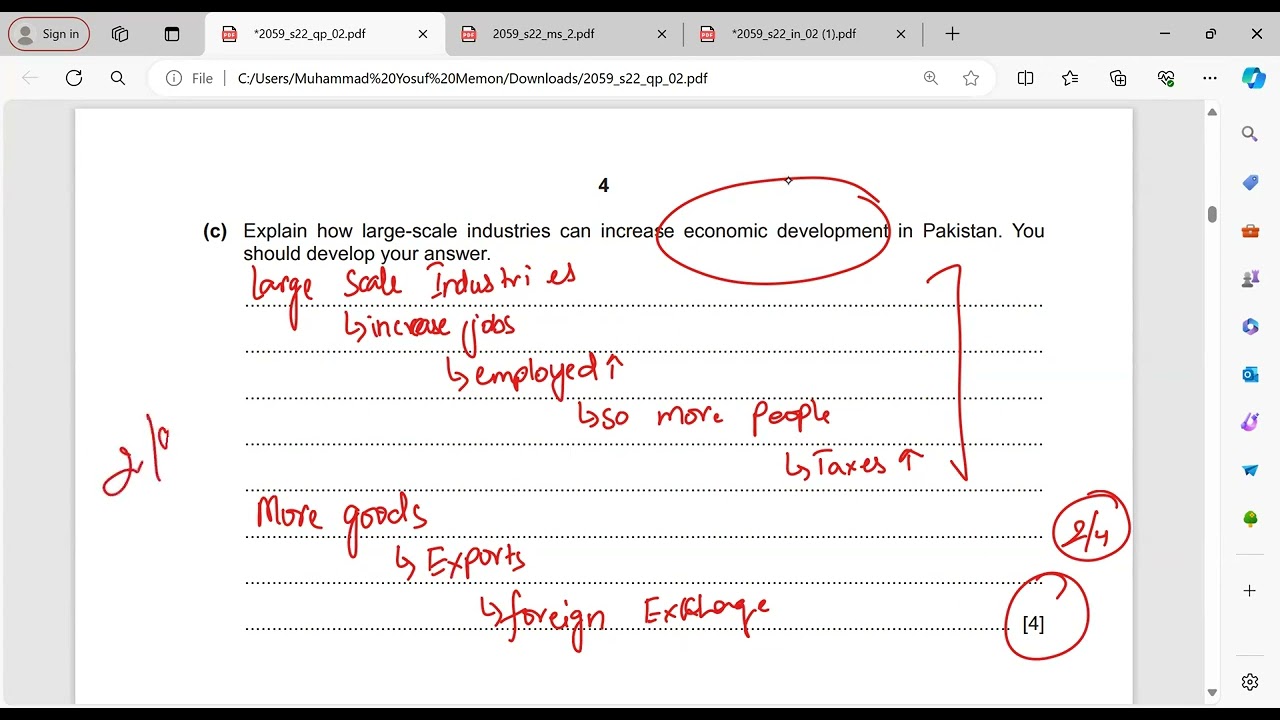 Sign in
*2059_s22_qp_02.pdf
2059_s22_ms_2.pdf
*2059_s22_in_02 (1).pdf
File
C:/Users/Muhammad%20Yosuf%20Memon/Downloads/2059_s22_qp_02.pdf
4
(c) Explain how large-scale industries can increase economic development in Pakistan. You
should develop your answer.
Large Scale Industries
↳increase jobs
↳employed↑
↳so more people
↳Taxes ↑
More goods
2/4
↳Exports
↳foreign Exchange
[4]